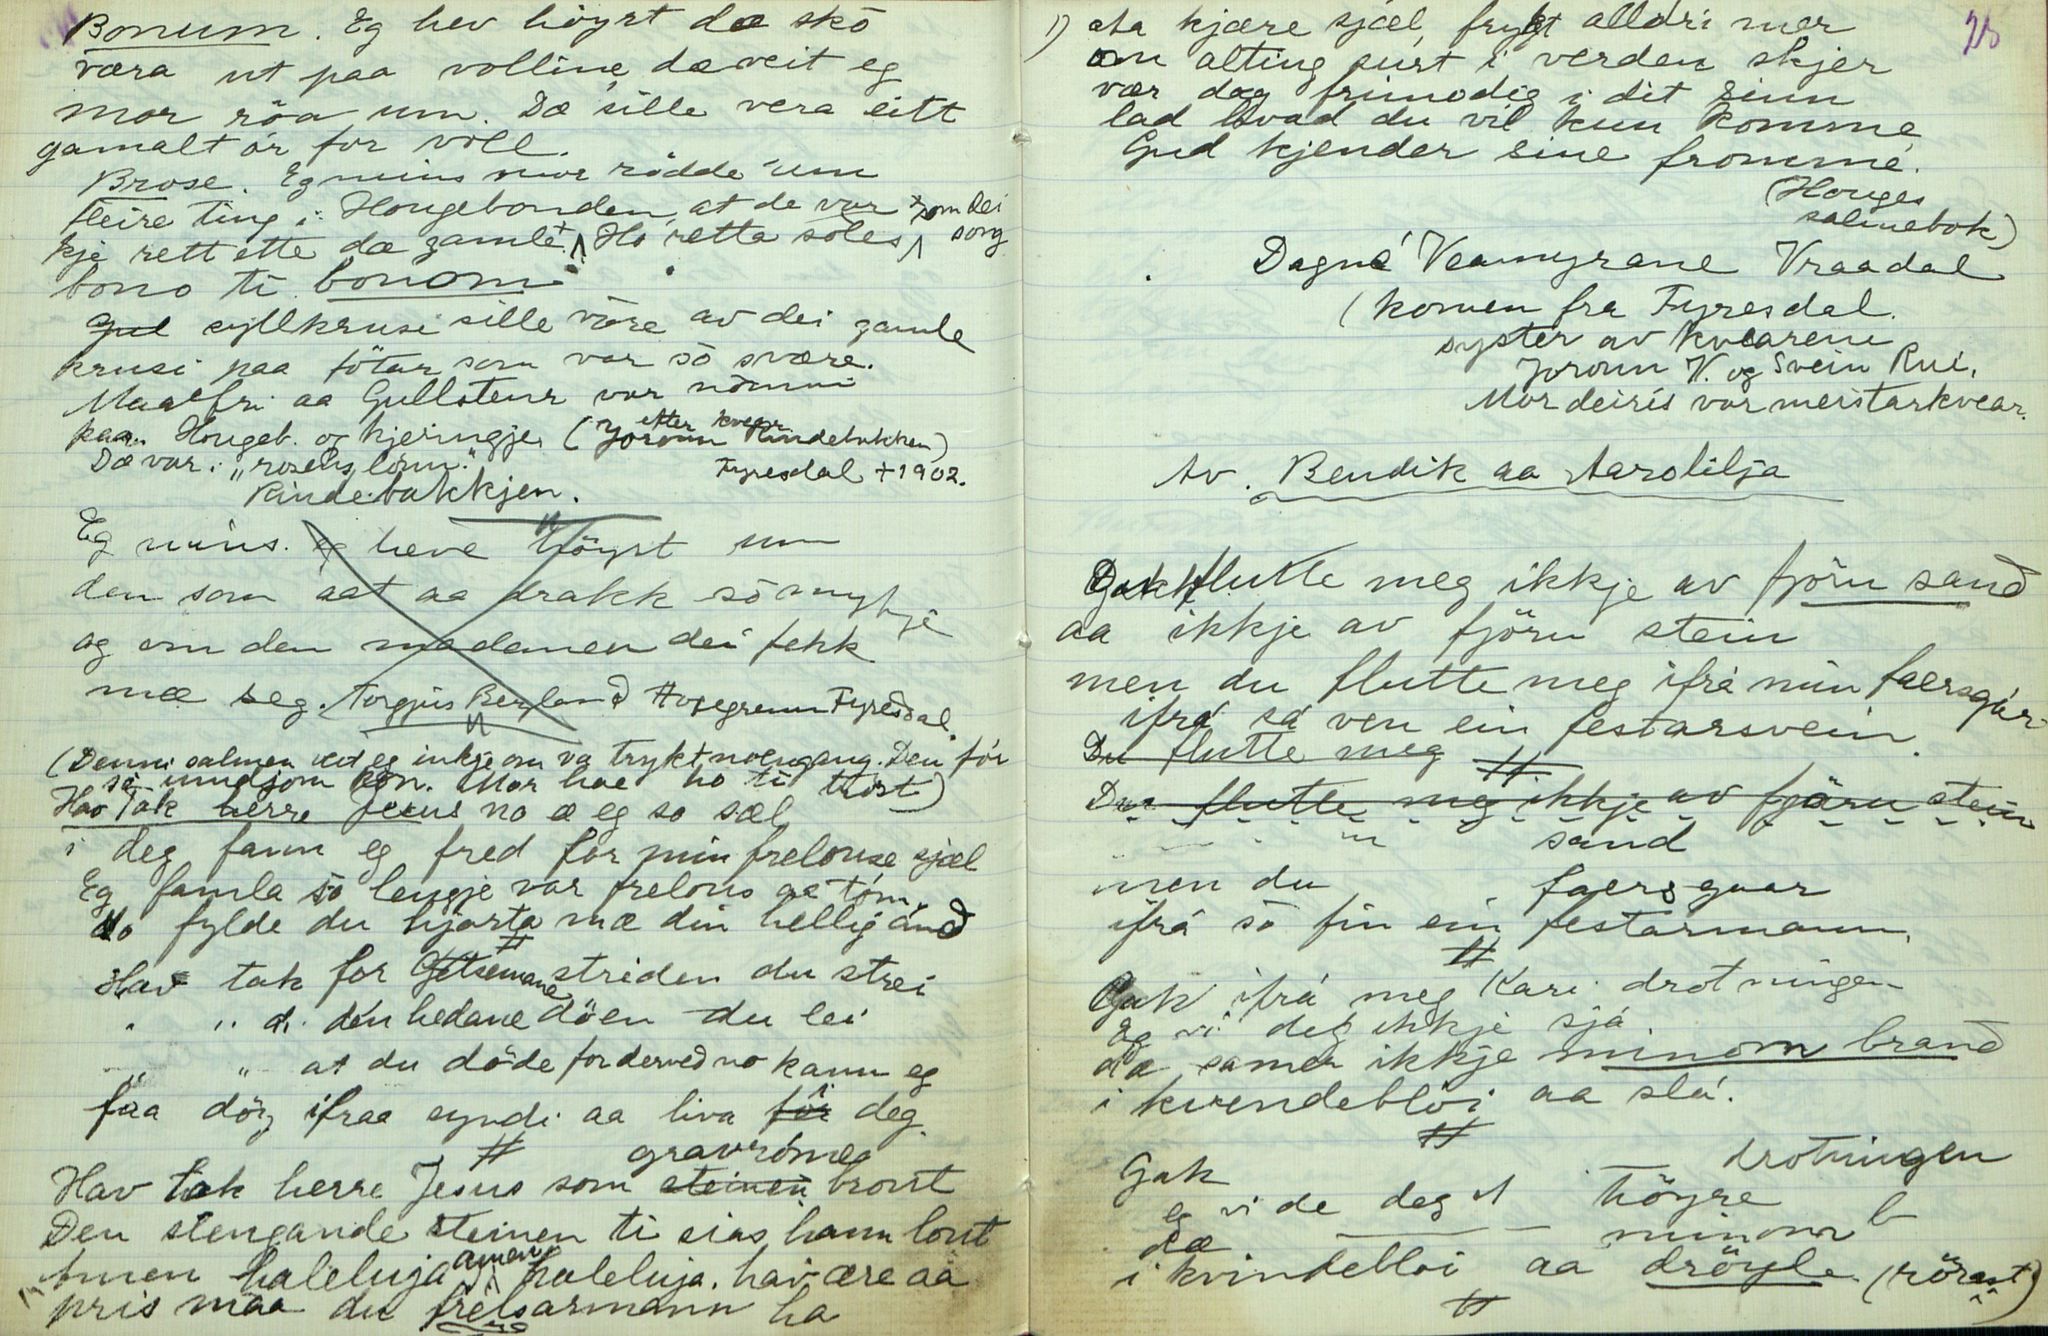 Bonum. Eg hev höyrt dæ skô
væra ut paa volline, dæ veit eg
mor röa um. Dæ sille vera eitt
gamalt ór for voll.
Brose. Eg mins mor rödde um
fleire ting i Hougebonden, at de var som dei song
kje rett ette dæ gamle. Ho retta söles
bono ti bonom
Gul syllkrusi sille vöre av dei gamle
krusi paa fötar som var sö svære.
Maalfri aa Gullstein var nömni
paa Hougeb. og kjeringje (efter kvear Joronn Rindebakken)
Dæ var i "rosenslönn."
Fyresdal + 1902.
Rindebakkjen.
Eg mins. eg heve höyrt um
den som aat aa drakk sö mykje
og om den madamen dei fekk
mæ seg. Torgjus Bergland Hovegrenn Fyresdal.
(Denni salmen veit eg inkje om va trykt noengang. Den fór
so mudjom kôn. Mor hae ho ti tröst)
Hav Tak herre Jesus no æ eg so sæl
i deg fann eg fred for min frelouse sjæl
Eg famla sö lengje var frelous aa tóm.
do fylde du hjarta mæ din hellig ánd
#
Hav tak for Getsemane striden du strei
" " d. den hedane döen du lei
" " at du döde for derved no kann eg
faa döy ifraa syndi aa liva för i deg.
#
gravröme
Hav tak herre Jesus som steinen broust
Den stengande steinen ti sias hann lout
Amen haleluja amen haleluja. hav ære aa
pris maa du frelsarmann ha
28
1) Aa kjære sjæl, frykt alldri mer
om alting surt i verden skjer
vær dog frimodig i dit sinn
lad hvad du vil kun komme
Gud kjender sine fromme.
(Houges
salmebok)
Dagné Veamyrane Vraadal
(komen fra Fyresdal.
syster av kvearene
Joronn V. og Svein Rui.
Mor deiris var meistarkvear.
Av. Bendik aa Aarolilja
Gakk flutte meg ikkje av fjöru sand
aa ikkje av fjöru stein
men du flutte meg ifrá min faersgár
ifrá sá ven ein festarsvein.
Du flutte meg
#
Du flutte meg ikkje av fjöru stein
" sand
men du faersgaar
ifrá sö fin ein festarmann.
#
Gak ifrá meg Kari drotningen
Eg vi deg ikkje sjá
dæ samer ikkje minom brand
i kvendeblôi aa slá.
#
Gak drotningen
eg vi de deg höyre
dæ minom b
i kvindebloi aa dröyle. (röast)
#